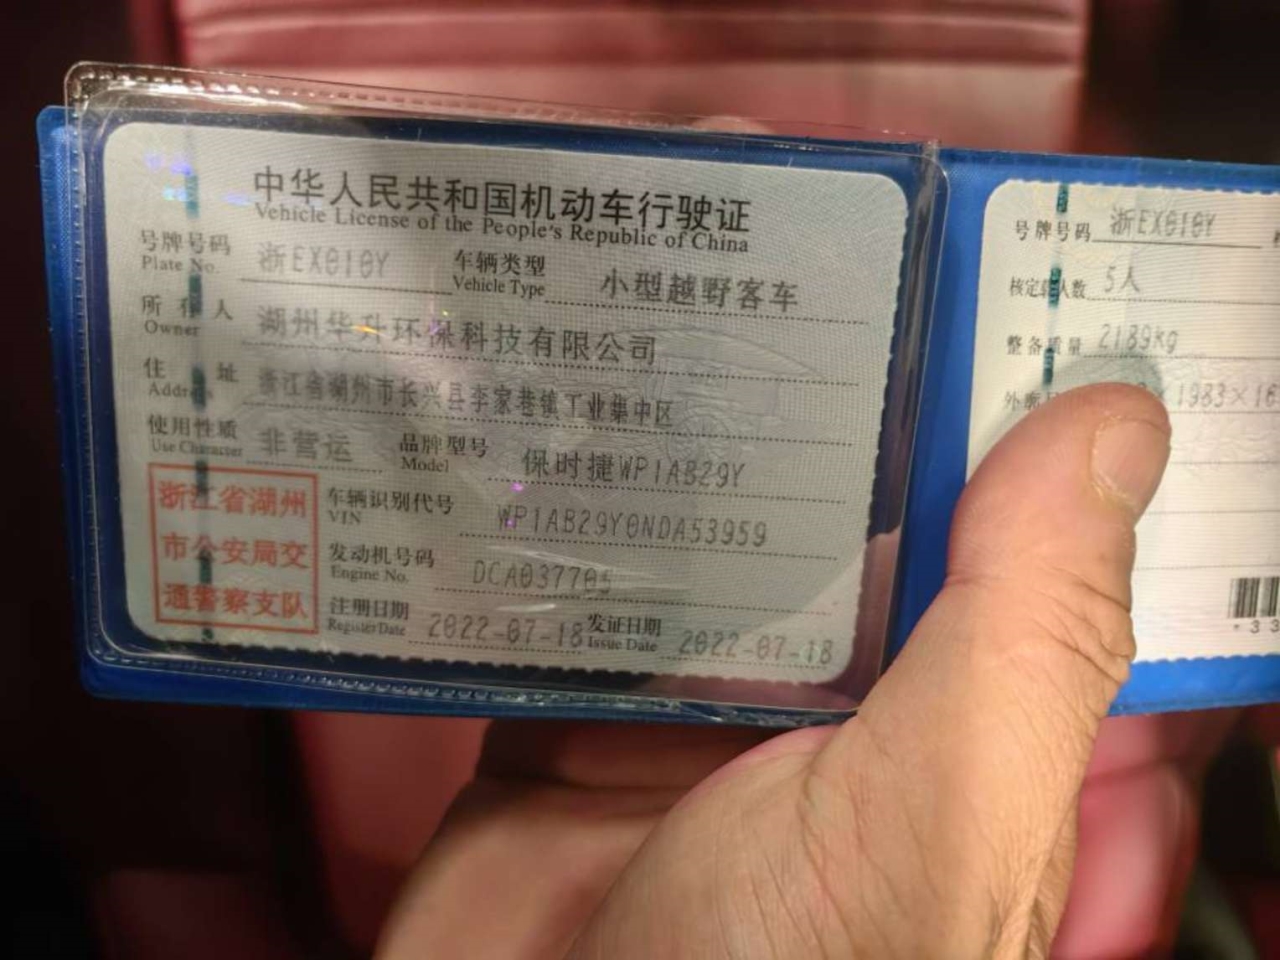 中华人民共和国机动车行驶证
Vehicle License of the People's Republic of China
号牌号码 浙EX010Y 车辆类型 小型越野客车
Plate No. Vehicle Type
所有人 湖州华升环保科技有限公司
Owner
住址 浙江省湖州市长兴县李家巷镇工业集中区
Address
使用性质 非营运 品牌型号 保时捷WP1AB29Y
Use Character Model
浙江省湖州
市公安局交
通警察支队
车辆识别代号 WP1AB29Y0NDA53959
VIN
发动机号码 DCA037705
Engine No.
注册日期 2022-07-18 发证日期 2022-07-18
Register Date Issue Date
号牌号码 浙EX010Y
核定载人数 5人
整备质量 2189kg
×1983×16
*33